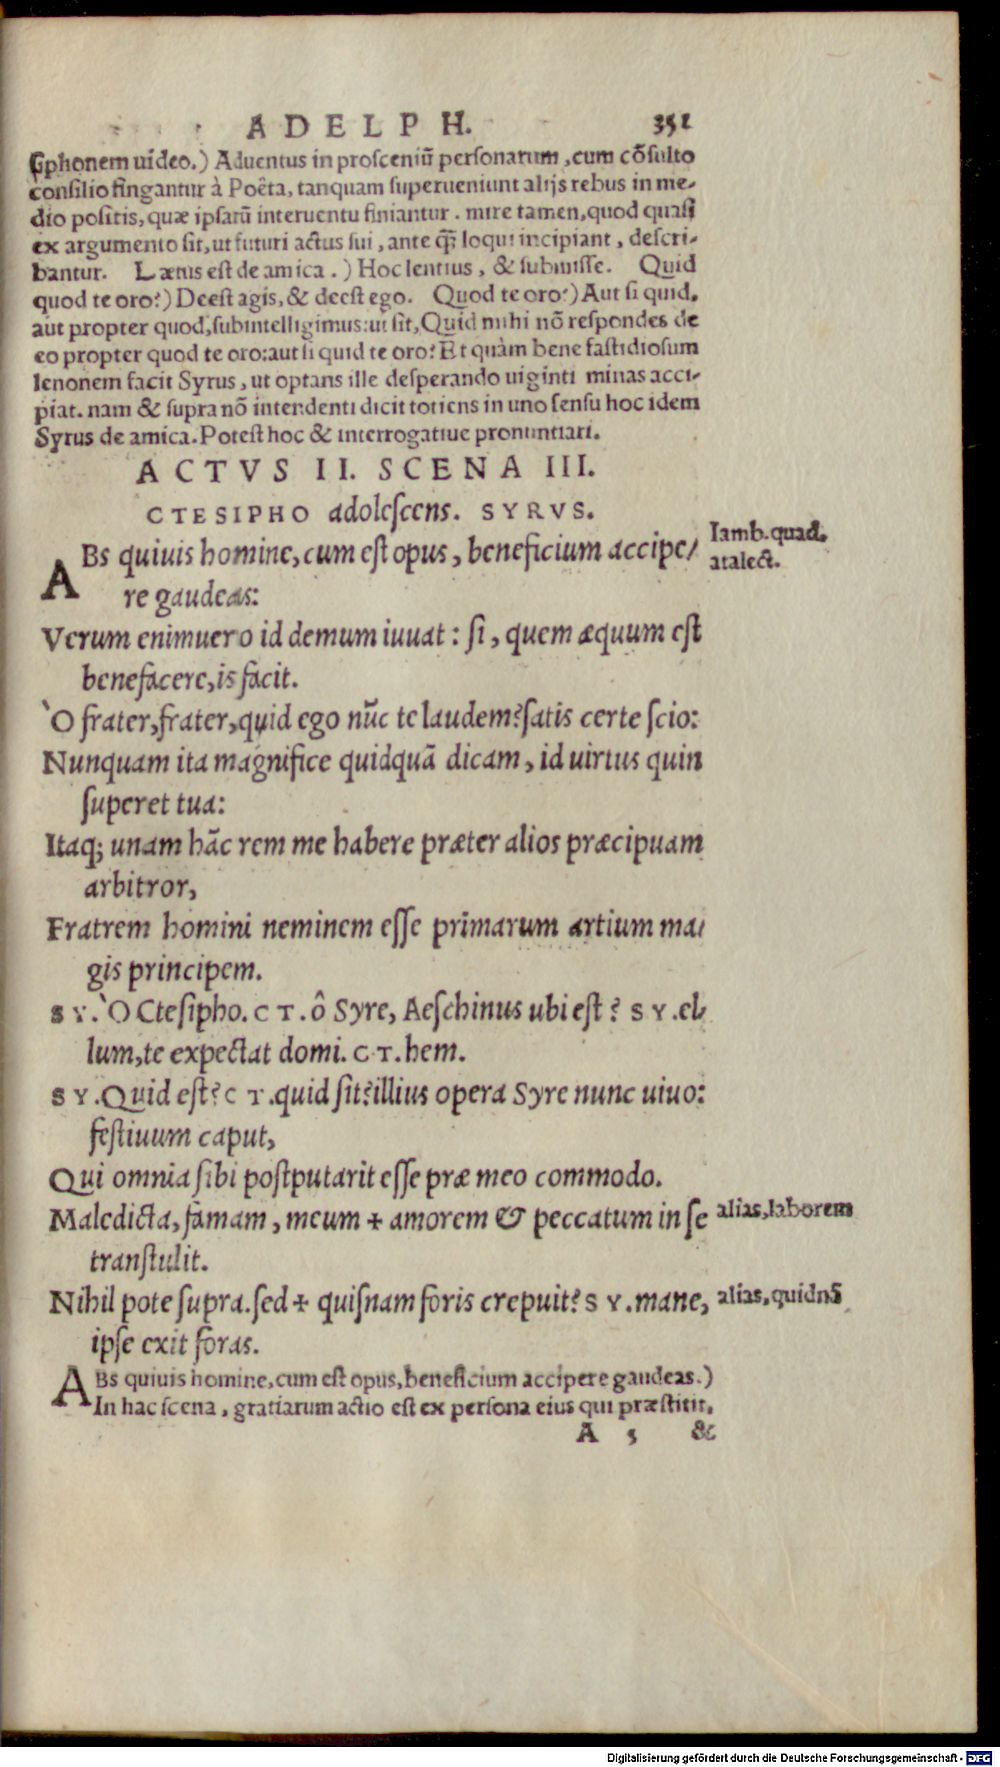 ADELPH. 351
siphonem uideo.) Aduentus in prosceniũ personarum, cum cõsulto
consilio fingantur à Poêta, tanquam superueniunt alijs rebus in me-
dio positis, quæ ipsarũ interuentu finiantur. mire tamen, quod quasi
ex argumento sit, ut futuri actus sui, ante q̃ loqui incipiant, descri-
bantur. Lætus est de amica.) Hoc lentius, & submisse. Quid
quod te oro?) Deest agis, & deest ego. Quod te oro?) Aut si quid,
aut propter quod, subintelligimus: ut sit, Quid mihi nõ respondes de
eo propter quod te oro: aut si quid te oro? Et quàm bene fastidiosum
lenonem facit Syrus, ut optans ille desperando uiginti minas acci-
piat. nam & supra nõ intendenti dicit totiens in uno sensu hoc idem
Syrus de amica. Potest hoc & interrogatiue pronuntiari.
ACTVS II. SCENA III.
CTESIPHO adolescens. SYRVS.
ABs quiuis homine, cum est opus, beneficium accipe- Iamb. quad.
re gaudeas: atalect.
Verum enimuero id demum iuuat: si, quem æquum est
benefacere, is facit.
Ò frater, frater, quid ego nũc te laudem? satis certe scio:
Nunquam ita magnifice quidquã dicam, id uirtus quin
superet tua:
Itaq; unam hãc rem me habere præter alios præcipuam
arbitror,
Fratrem homini neminem esse primarum artium ma-
gis principem.
SY. Ò Ctesipho. CT. ô Syre, Aeschinus ubi est? SY. el-
lum, te expectat domi. CT. hem.
SY. Quid est? CT. quid sit? illius opera Syre nunc uiuo:
festiuum caput,
Qui omnia sibi postputarit esse præ meo commodo.
Maledicta, famam, meum + amorem & peccatum in se alias, laborem
transtulit.
Nihil pote supra. sed + quisnam foris crepuit? SY. mane, alias, quidnã
ipse exit foras.
ABs quiuis homine, cum est opus, beneficium accipere gaudeas.)
In hac scena, gratiarum actio est ex persona eius qui præstitit,
A 5 &
Digitalisierung gefördert durch die Deutsche Forschungsgemeinschaft - DFG